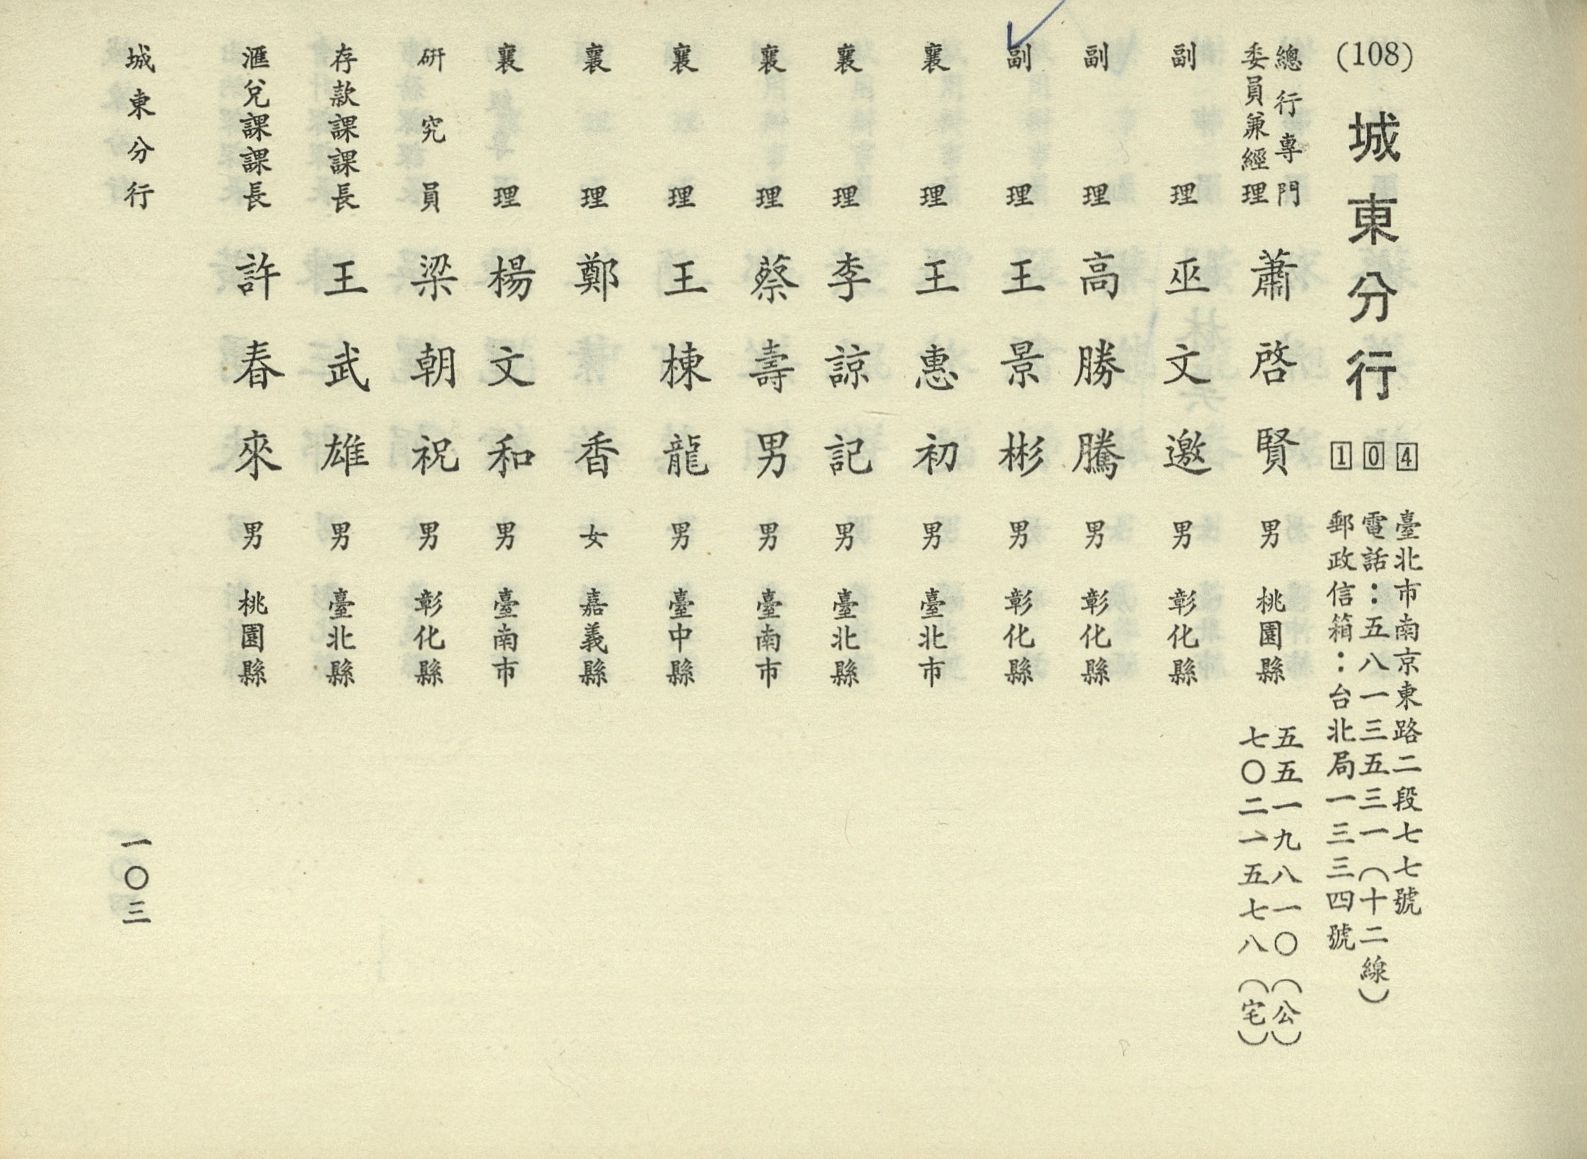 (108)
城東分行
104
臺北市南京東路二段七七號
電話：五八一三五三一（十二線）
郵政信箱：台北局一三三四號
總行專門
委員兼經理 蕭啓賢 男 桃園縣
五五一九八一〇（公）
七〇二一五七八（宅）
副理 巫文邀 男 彰化縣
副理 高勝騰 男 彰化縣
副理 王景彬 男 彰化縣
襄理 王惠初 男 臺北市
襄理 李諒記 男 臺北縣
襄理 蔡壽男 男 臺南市
襄理 王棟龍 男 臺中縣
襄理 鄭香 女 嘉義縣
襄理 楊文和 男 臺南市
研究員 梁朝祝 男 彰化縣
存款課課長 王武雄 男 臺北縣
滙兌課課長 許春來 男 桃園縣
城東分行
一〇三